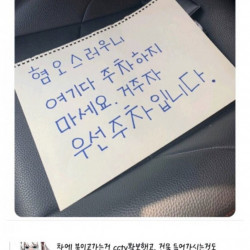 혐오스러우니
여기다 주차하지
마세요. 거주자
우선주차입니다.
차에 붙이고가는거 cctv확보했고, 겨우 들어가시는것도